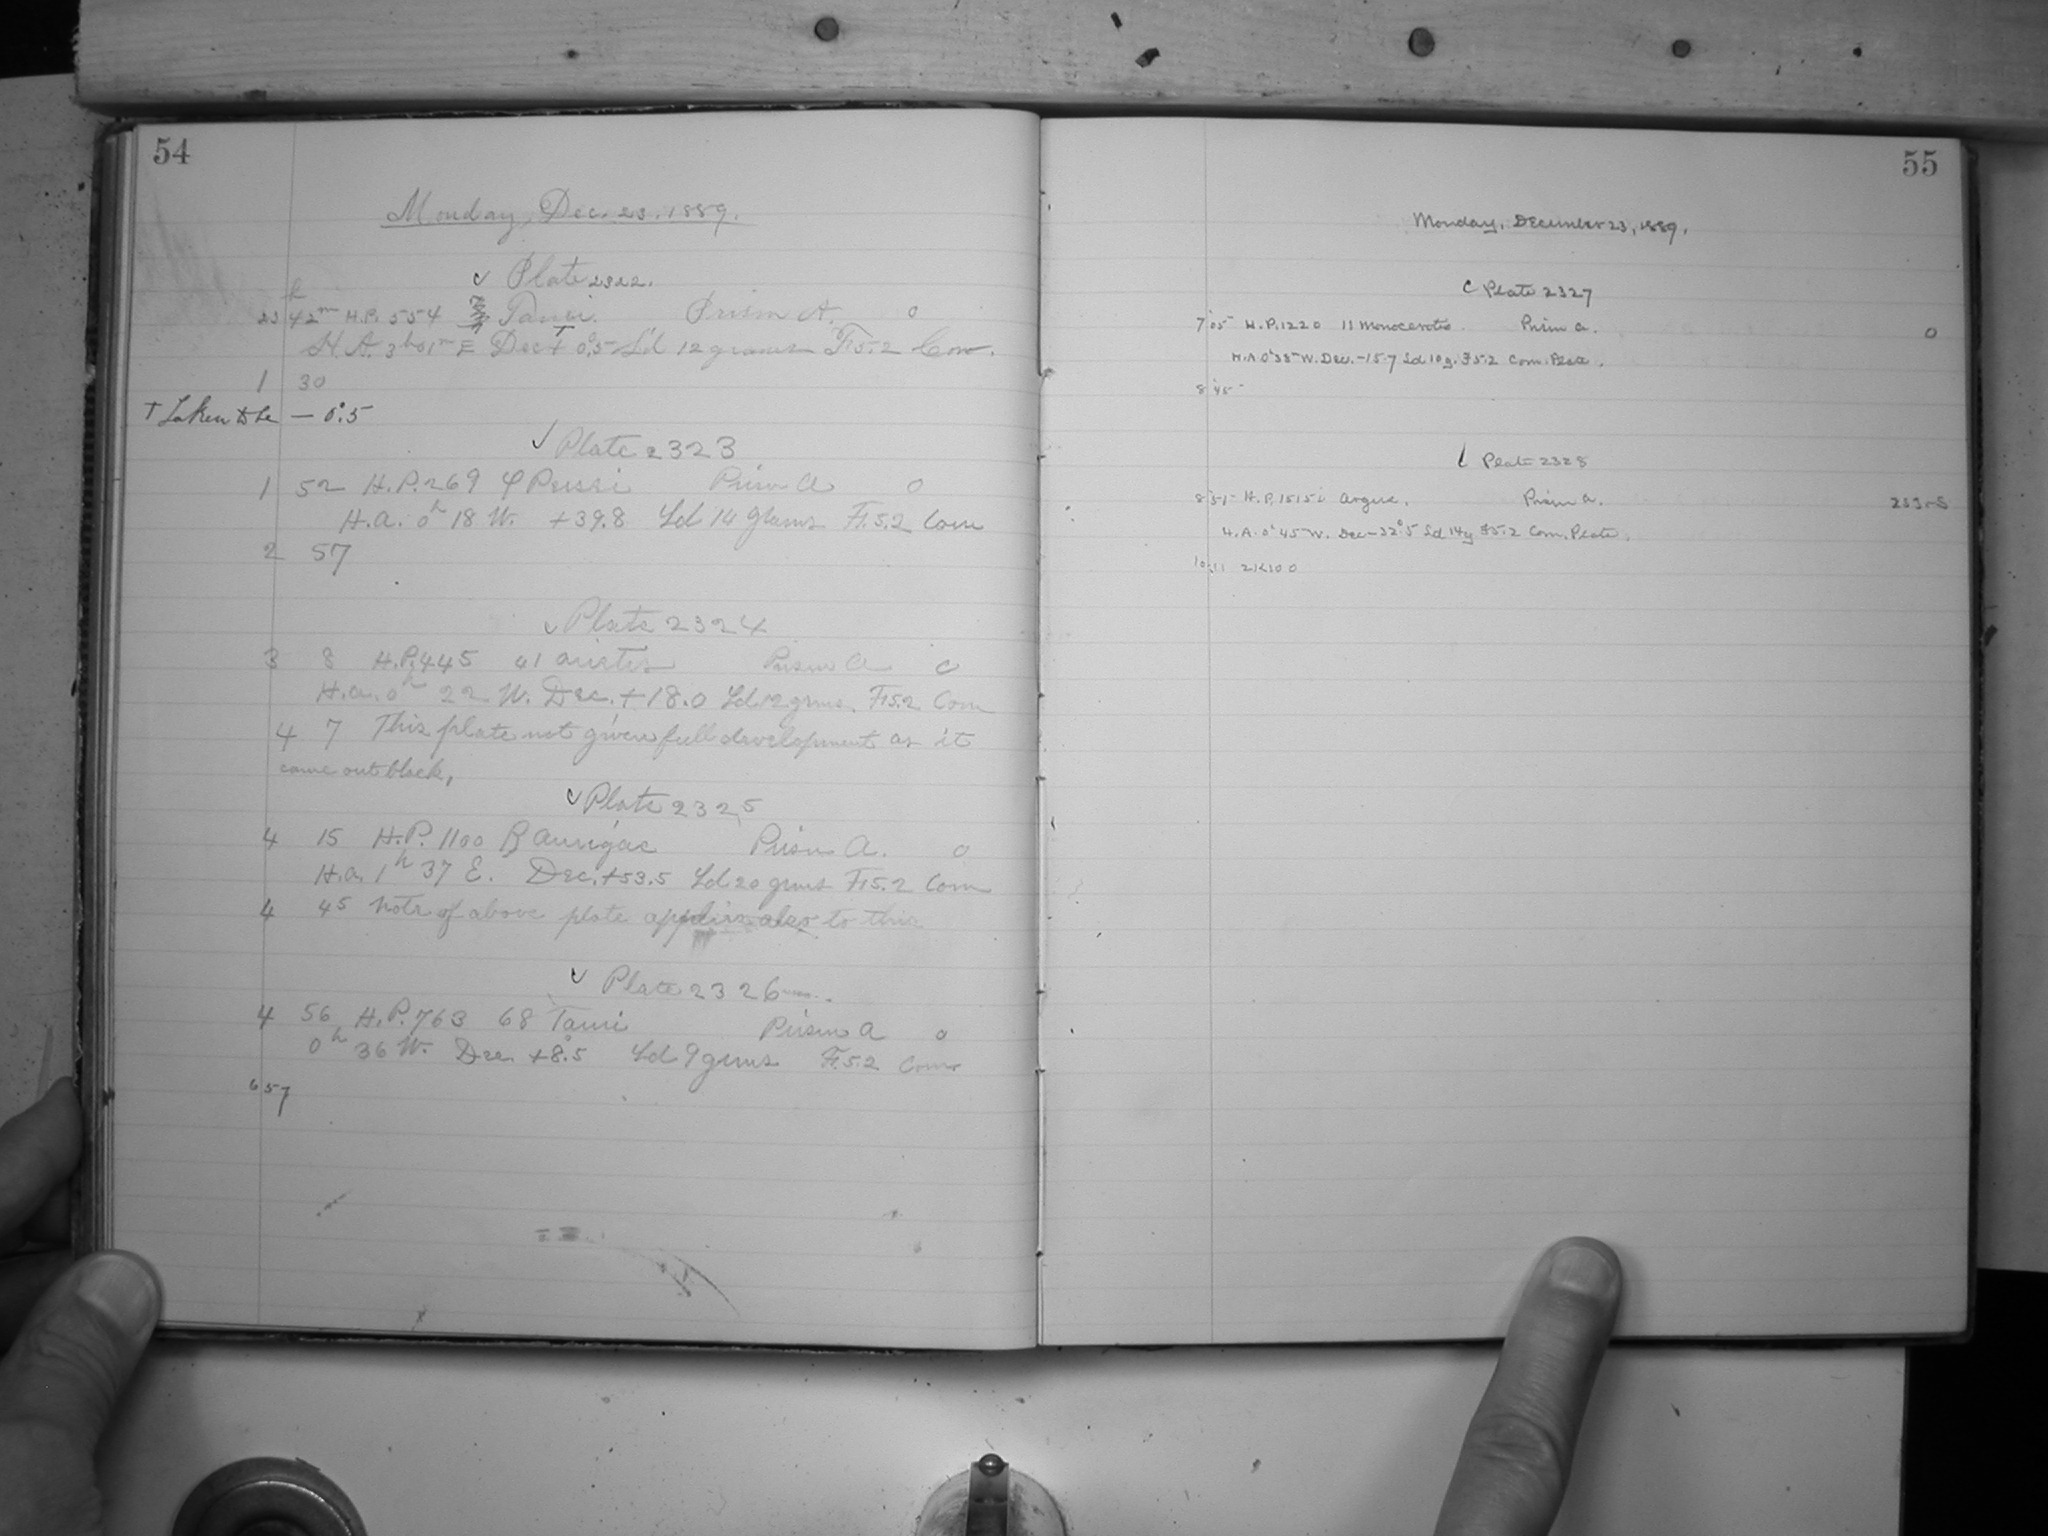 54
Monday, Dec. 23. 1889.
Plate 2322.
23 42m H.P. 554 Tauri. Prism A. 0
H.A. 3h 01m E Dec + 0°.5 Ld 12 grams F 5.2 Com.
1 30
† Taken to be — 0°.5
✓ Plate 2323
1 52 H.P. 269 φ Persei Prism A 0
H.a. 0h 18 W. +39.8 Ld 14 grams F. 5.2 Com
2 57
✓ Plate 2324
3 8 H.P. 445 41 arietis Prism A
H.a. 0h 22 W. Dec. +18.0 Ld 12 grms. F 5.2 Com
4 7 This plate not given full development as it
came out black,
✓ Plate 2325
4 15 H.P. 1100 Aurigae Prism A. 0
H.a. 1h 37 E. Dec. +53.5 Ld 20 grms F 5.2 Com
4 45 Note of above plate applies also to this
✓ Plate 2326
4 56 H.P. 763 68 Tauri Prism A 0
0h 36 W. Dec. +8°.5 Ld 9 grms F. 5.2 Com
6 57
55
Monday, December 23, 1889.
Plate 2327
7 05 H.P. 1220 11 Monocerotis. Prism a. 0
H.A. 0h 38 W. Dec. -15.7 Ld 10 g. F 5.2 Com. Plate.
8 45
Plate 2328
8 51 H.P. 1515 Argus. Prism a.
H.A. 0h 45 W. Dec -32°.5 Ld 14g F 5.2 Com. Plate.
10 11